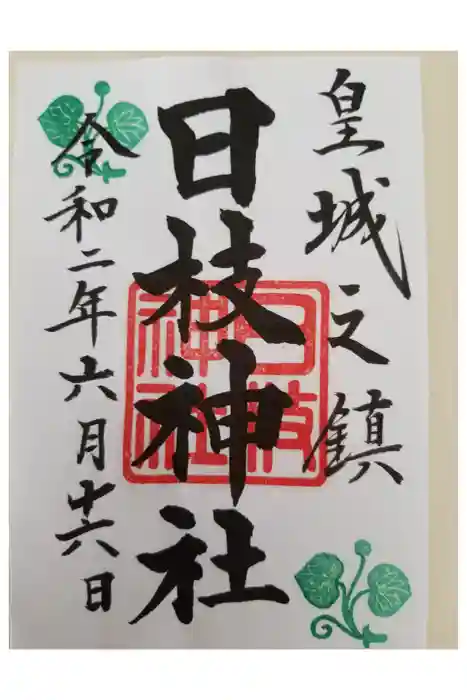 皇城之鎮
日枝神社
日枝
神社
令和二年六月十六日